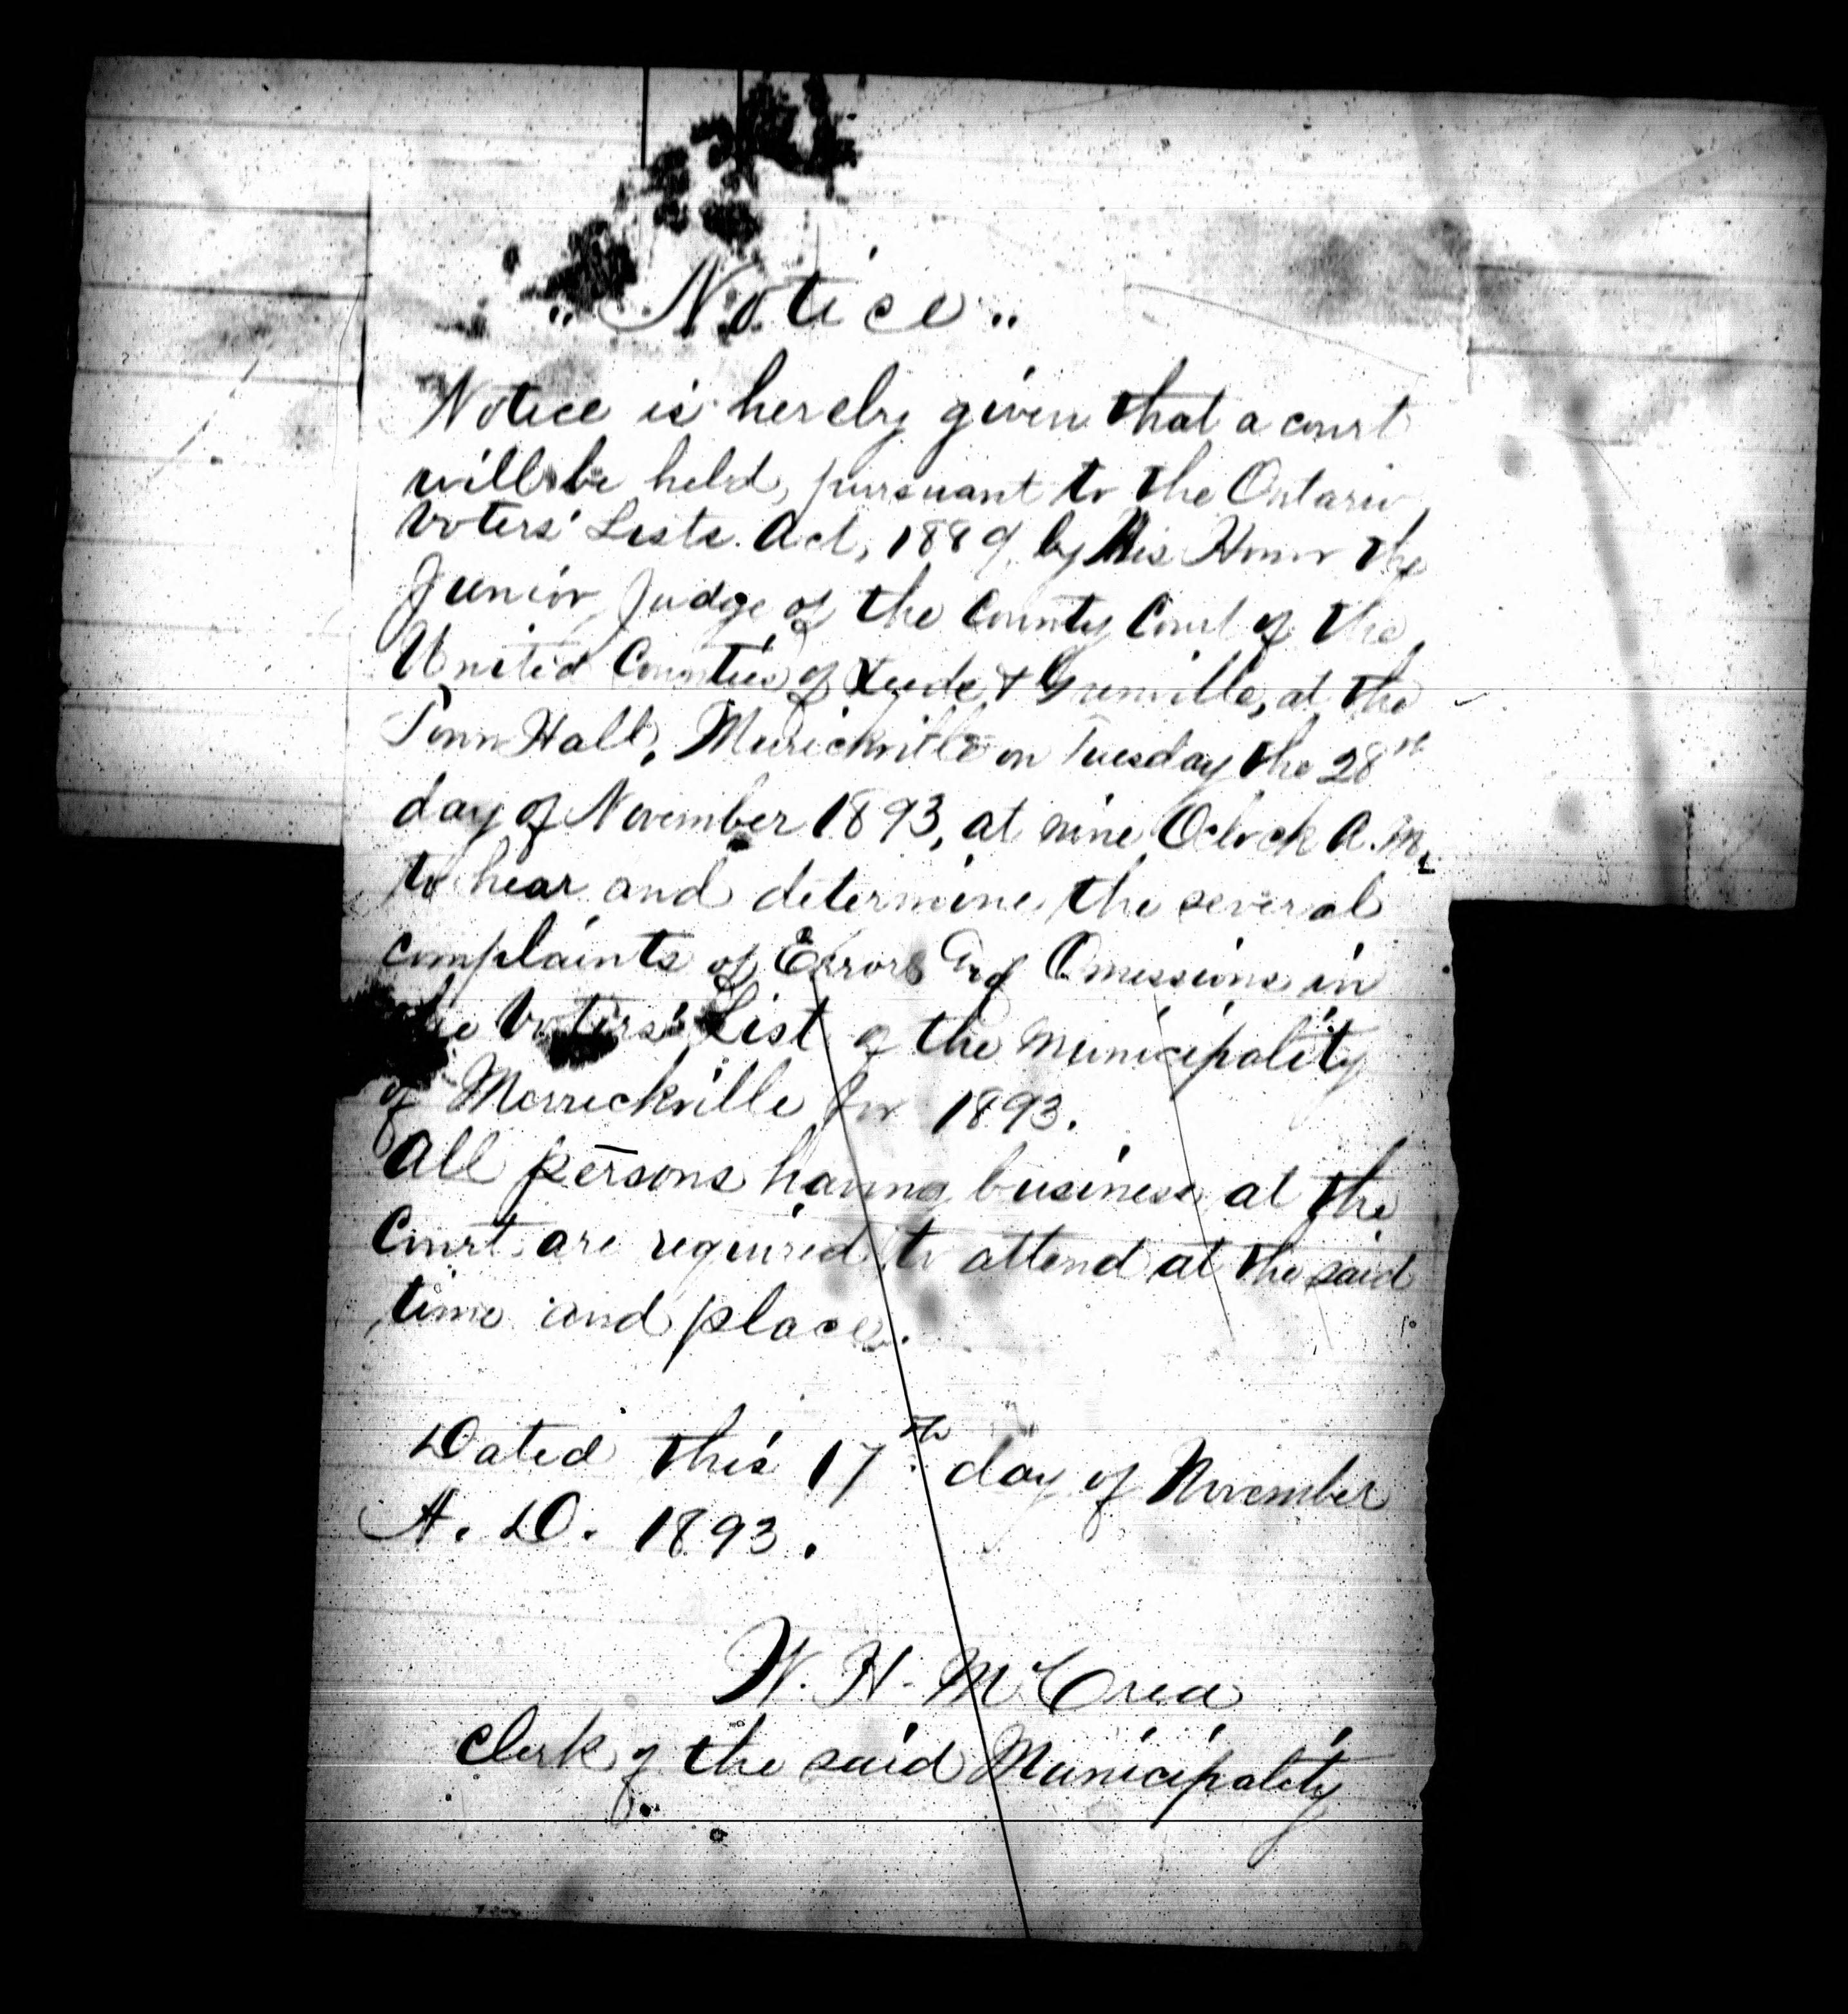 "Notice"
Notice is hereby given that a court
will be held, pursuant to the Ontario
Voters' Lists Act, 1889, by His Honor the
Junior Judge of the County Court of the
United Counties of Leeds & Grenville, at the
Town Hall, Merrickville on Tuesday the 28th
day of November 1893, at nine Oclock A.M.
to hear and determine the several
complaints of Errors and Omissions in
the Voters' List of the Municipality
of Merrickville for 1893.
All persons having business at the
Court are required to attend at the said
time and place.
Dated this 17th day of November
A.D. 1893.
W. H. McCrea
Clerk of the said Municipality